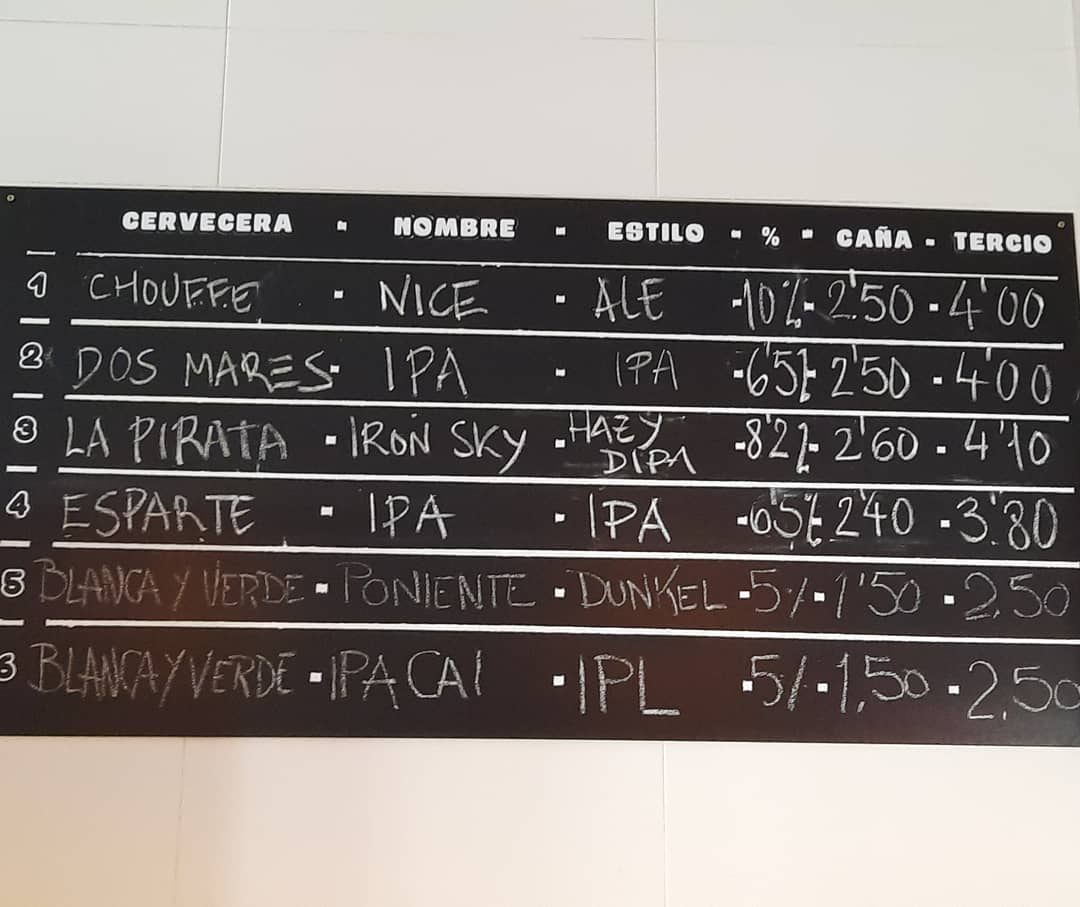 CERVECERA - NOMBRE - ESTILO - % - CAÑA - TERCIO
1 CHOUFFE - NICE - ALE - 10% - 2'50 - 4'00
2 DOS MARES - IPA - IPA - 6'5% - 2'50 - 4'00
3 LA PIRATA - IRON SKY - HAZY DIPA - 8'2% - 2'60 - 4'10
4 ESPARTE - IPA - IPA - 6'5% - 2'40 - 3'80
5 BLANCA Y VERDE - PONIENTE - DUNKEL - 5% - 1'50 - 2,50
BLANCA Y VERDE - IPA CAI - IPL - 5% - 1,50 - 2,50